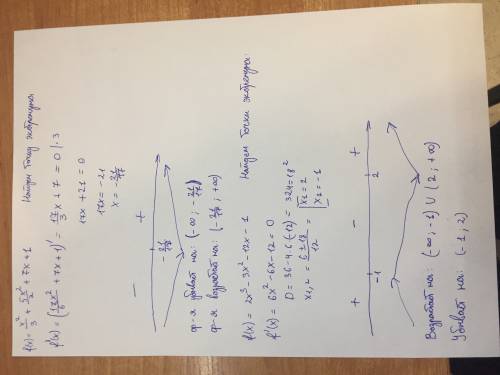 f(x) = x²/3 + 5x²/2 + 7x + 1 Найдем точку экстремума
f'(x) = (17x²/6 + 7x + 1)' = 17/3 x + 7 = 0 | · 3
17x + 21 = 0
17x = -21
x = -21/17
- +
ф-я убывает на: (-∞; -21/17)
ф-я возрастает на: (-21/17; +∞)
f(x) = 2x³ - 3x² - 12x - 1 Найдем точки экстремума:
f'(x) = 6x² - 6x - 12 = 0
D = 36 - 4·6·(-12) = 324 = 18²
x₁,₂ = 6 ± 18 / 12 = [x₁ = 2 x₂ = -1
+ - +
-1 2
Возрастает на: (-∞; -1) ∪ (2; +∞)
Убывает на: (-1; 2)